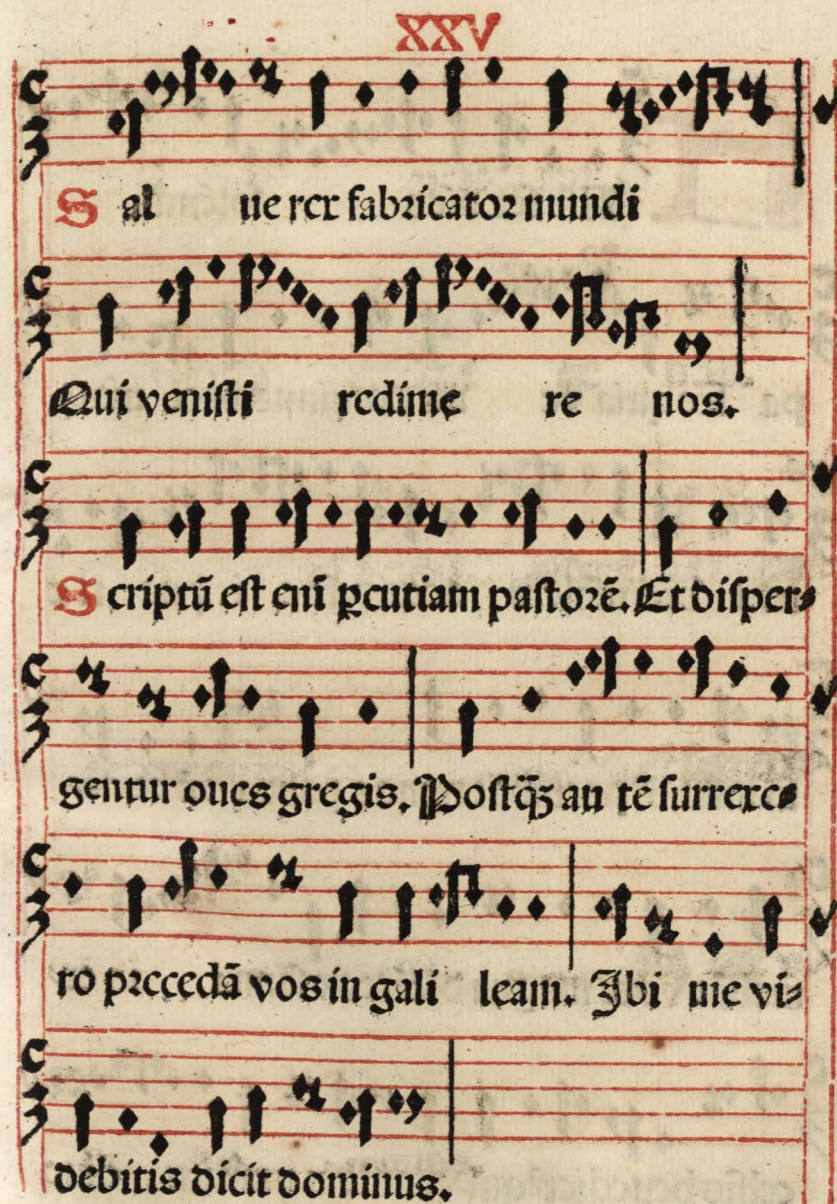 XXV
S al ue rex fabricator mundi
Qui veniſti redime re nos.
S criptū eſt eni̅ ꝑcutiam paſtorē. Et diſper⸗
gentur oues gregis. Poſtꝗ̄ꝫ au tē ſurrexe⸗
ro precedā vos in gali leam. Ibi me vi⸗
debitis dicit dominus.